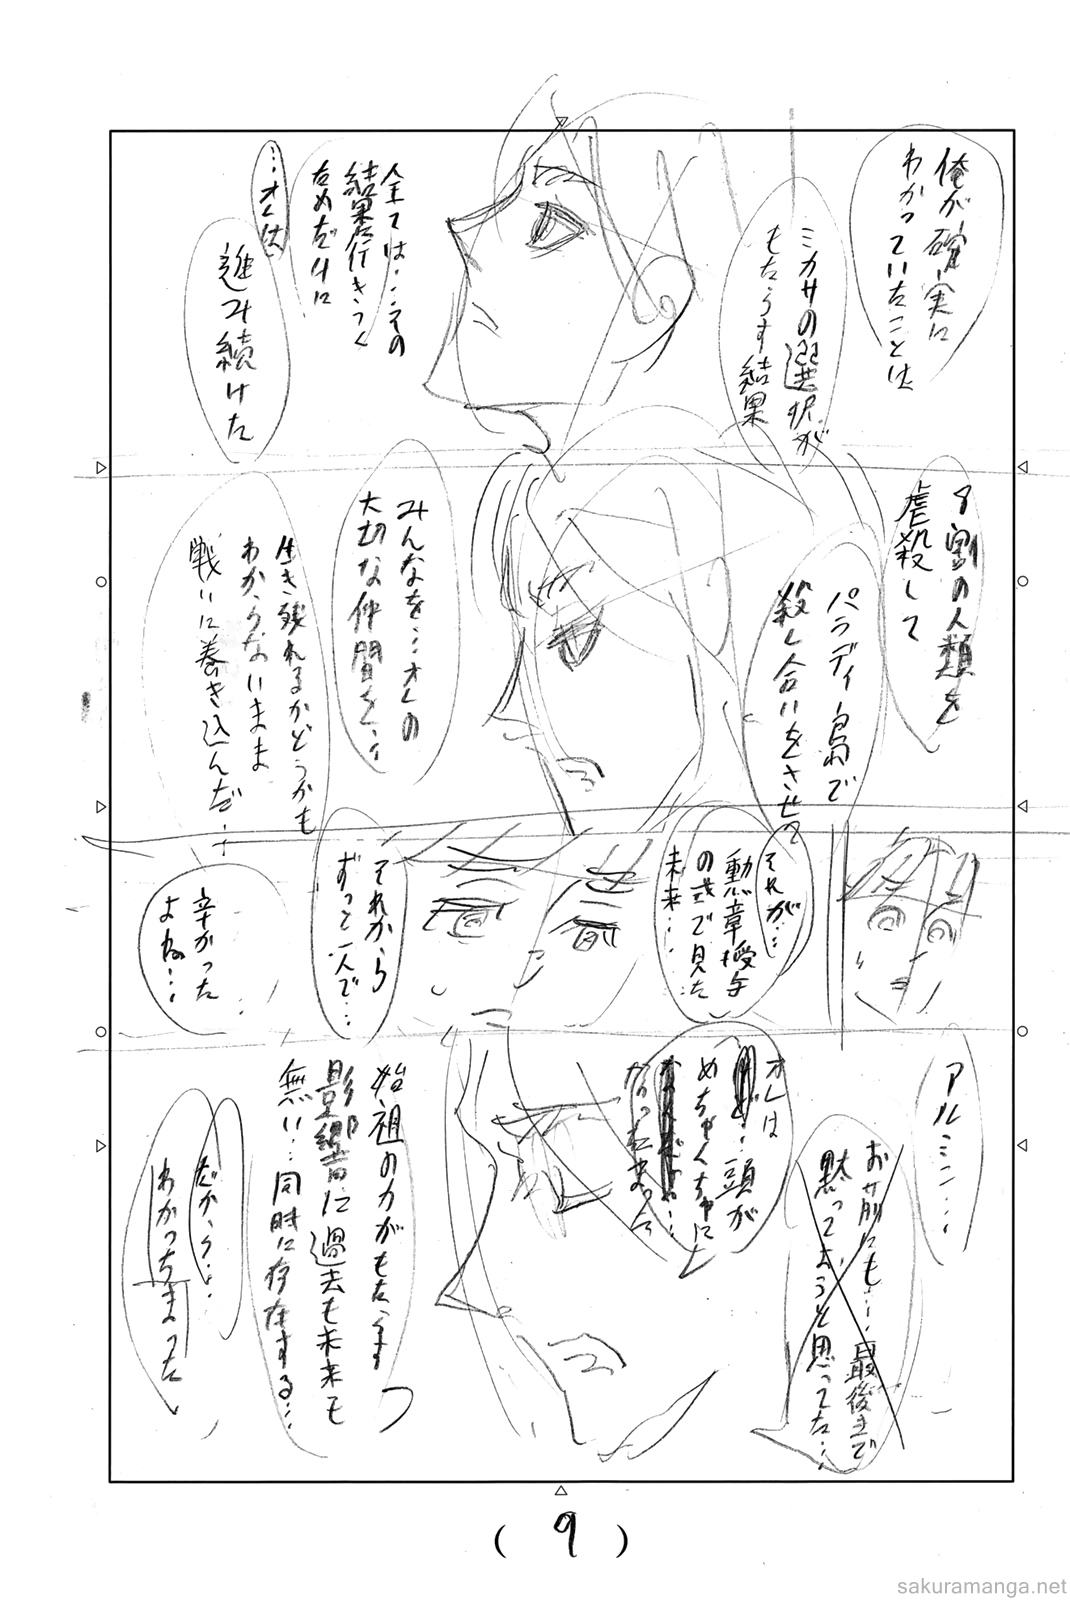 俺が確実に
わかっていたことは
ミカサの選択が
もたらす結果
全ては…その
結果に行きつく
ためだけに
…オレは
進み続けた
8割の人類を
虐殺して
パラディ島で
殺し合いをさせて
みんなを…オレの
大切な仲間を…
生き残れるかどうかも
わからないまま
戦いに巻き込んだ…
それが…
勲章授与
の式で見た
未来…
それから
ずっと一人で…
辛かった
よね…
アルミン…
お前にも…最後まで
黙ってようと思ってた…
オレは
頭が
めちゃくちゃに
なっちまって
始祖の力がもたらす
影響に過去も未来も
無い…同時に存在する…
だから…
わかっちまった
(9)
sakuramanga.net